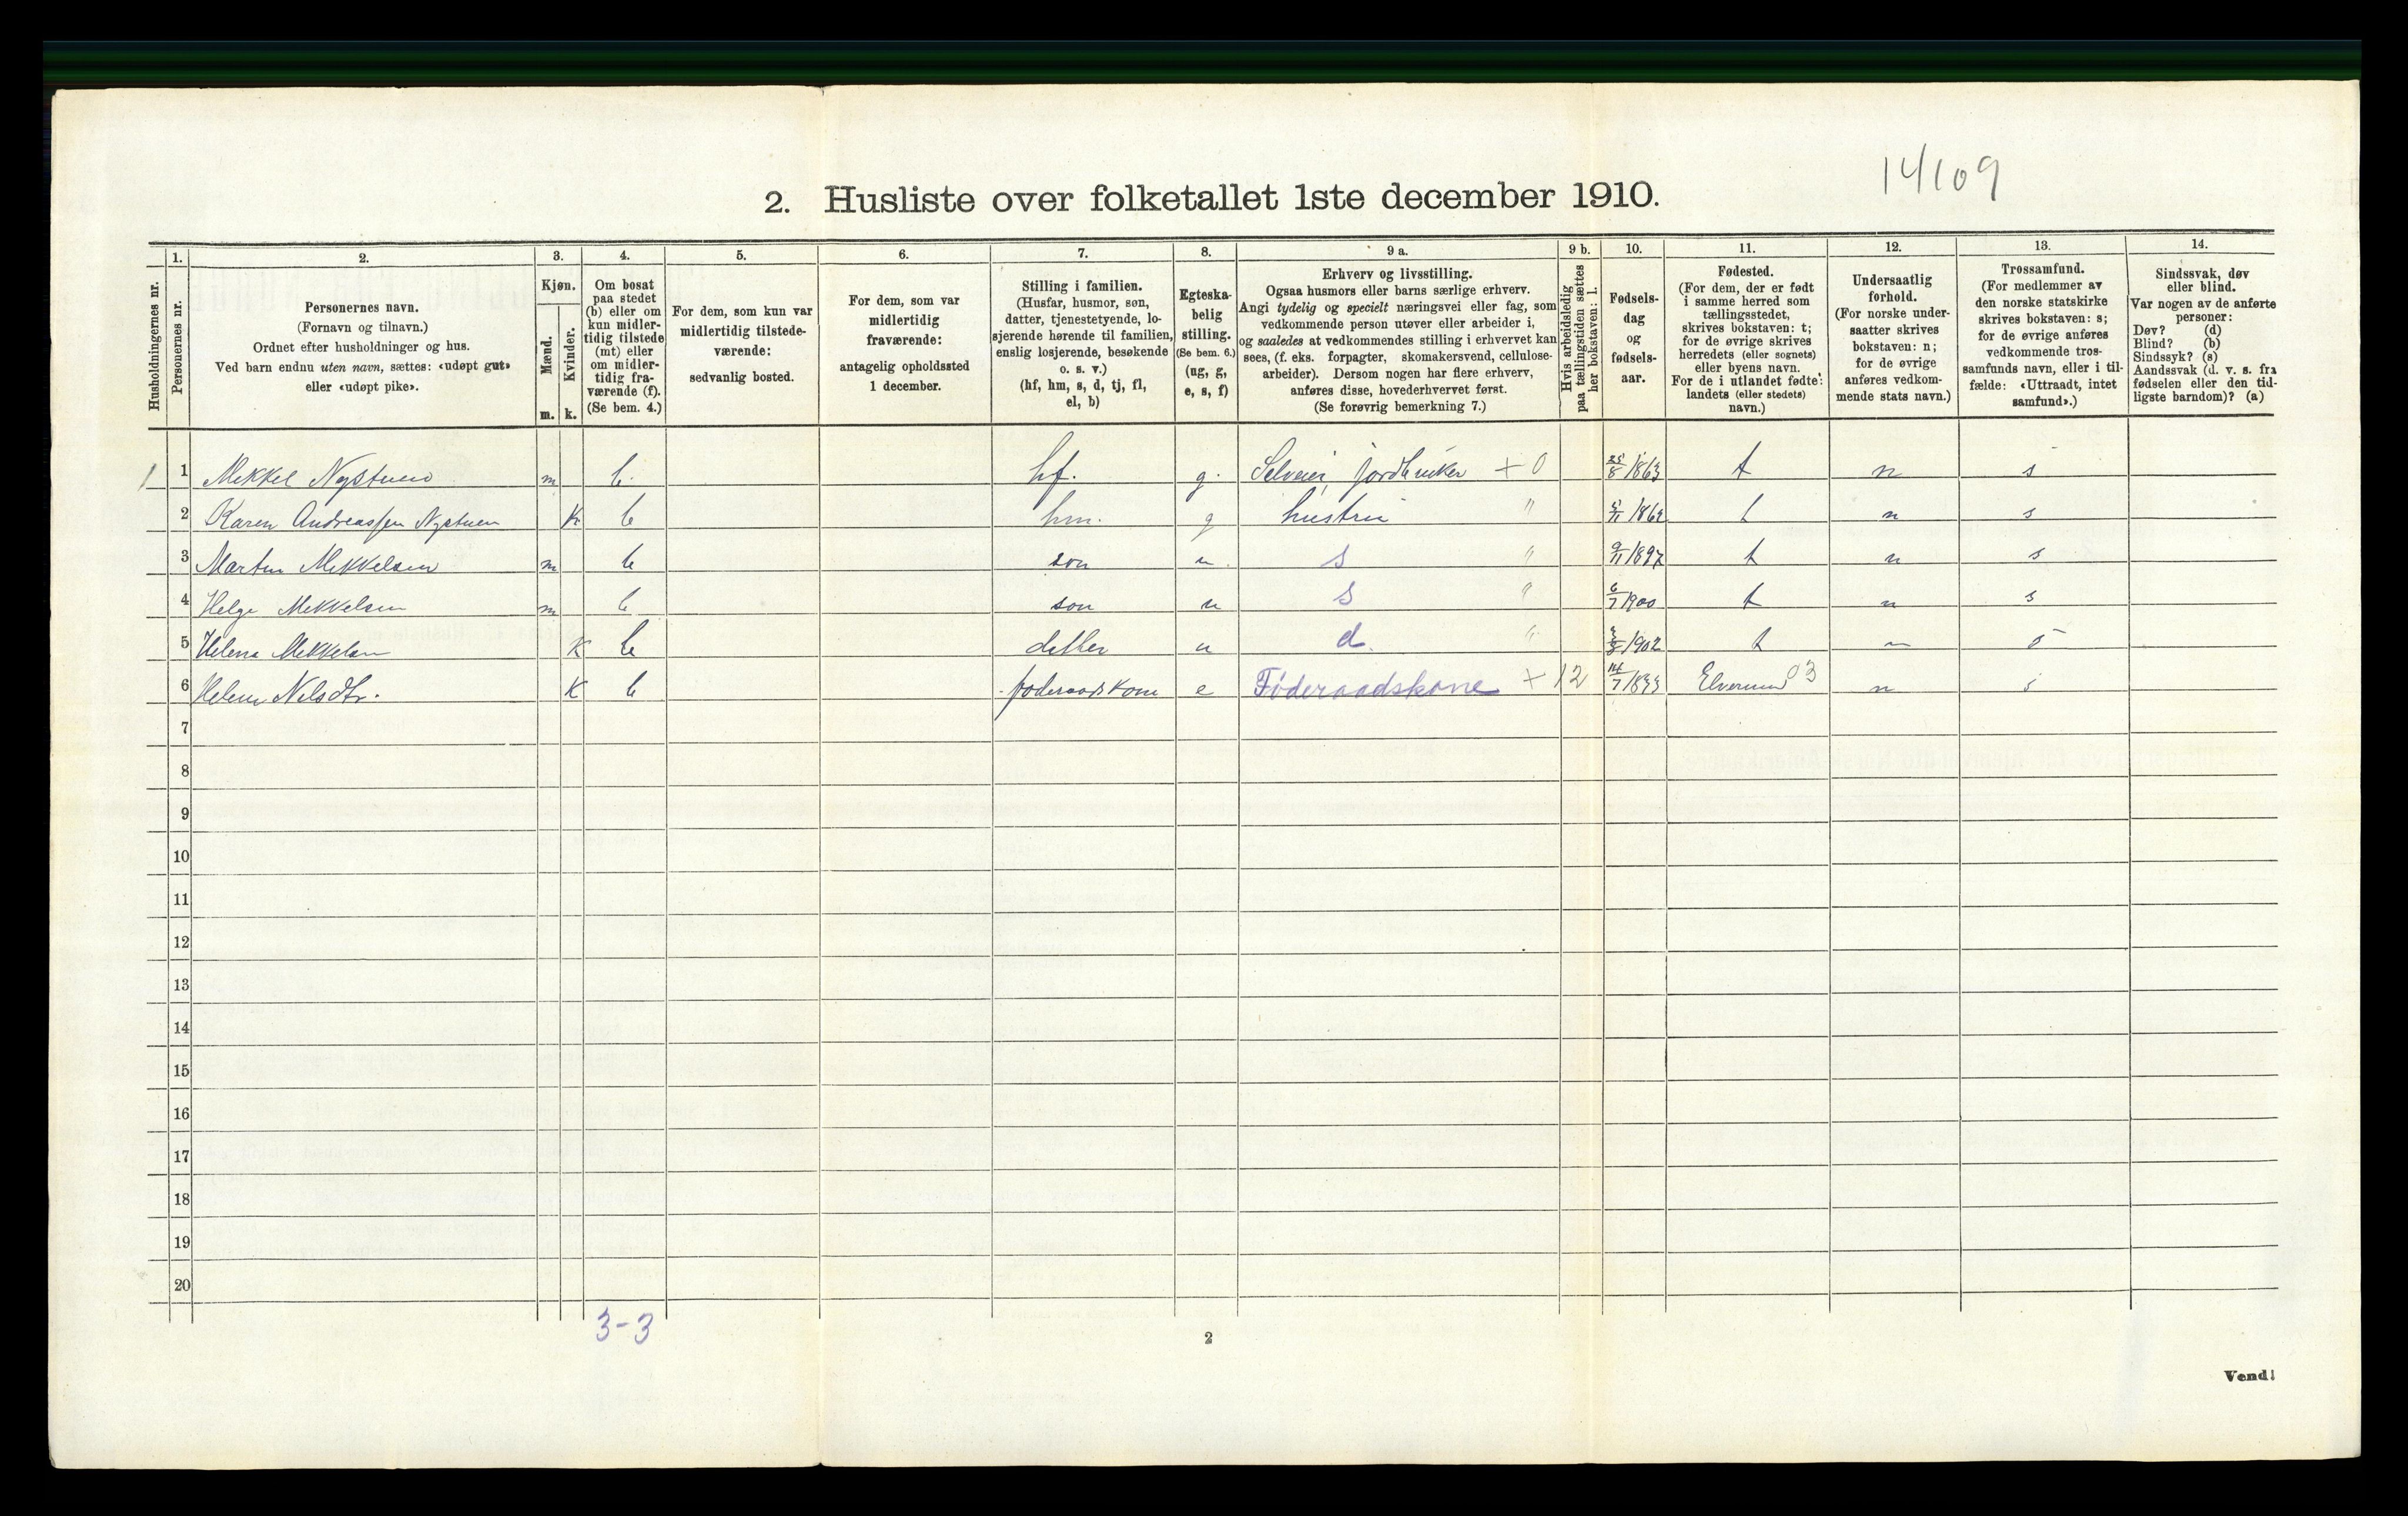 14109
2. Husliste over folketallet 1ste december 1910.
Husholdningernes nr.
1.
Personernes nr.
2.
Personernes navn.
(Fornavn og tilnavn.)
Ordnet efter husholdninger og hus.
Ved barn endnu uten navn, sættes: «udøpt gut»
eller «udøpt pike».
3.
Kjøn.
Mænd.
m.
Kvinder.
k.
4.
Om bosat
paa stedet
(b) eller om
kun midler-
tidig tilstede
(mt) eller
om midler-
tidig fra-
værende (f).
(Se bem. 4.)
5.
For dem, som kun var
midlertidig tilstede-
værende:
sedvanlig bosted.
6.
For dem, som var
midlertidig
fraværende:
antagelig opholdssted
1 december.
7.
Stilling i familien.
(Husfar, husmor, søn,
datter, tjenestetyende, lo-
sjerende hørende til familien,
enslig losjerende, besøkende
o. s. v.)
(hf, hm, s, d, tj, fl,
el, b)
8.
Egteska-
belig
stilling.
(Se bem. 6.)
(ug, g,
e, s, f)
9 a.
Erhverv og livsstilling.
Ogsaa husmors eller barns særlige erhverv.
Angi tydelig og specielt næringsvei eller fag, som
vedkommende person utøver eller arbeider i,
og saaledes at vedkommendes stilling i erhvervet kan
sees, (f. eks. forpagter, skomakersvend, cellulose-
arbeider). Dersom nogen har flere erhverv,
anføres disse, hovederhvervet først.
(Se forøvrig bemerkning 7.)
9 b.
Hvis arbeidsledig
paa tællingstiden sættes
her bokstaven: l.
10.
Fødsels-
dag
og
fødsels-
aar.
11.
Fødested.
(For dem, der er født
i samme herred som
tællingsstedet,
skrives bokstaven: t;
for de øvrige skrives
herredets (eller sognets)
eller byens navn.
For de i utlandet fødte:
landets (eller stedets)
navn.)
12.
Undersaatlig
forhold.
(For norske under-
saatter skrives
bokstaven: n;
for de øvrige
anføres vedkom-
mende stats navn.)
13.
Trossamfund.
(For medlemmer av
den norske statskirke
skrives bokstaven: s;
for de øvrige anføres
vedkommende tros-
samfunds navn, eller i til-
fælde: «Uttraadt, intet
samfund».)
14.
Sindssvak, døv
eller blind.
Var nogen av de anførte
personer:
Døv? (d)
Blind? (b)
Sindssyk? (s)
Aandssvak (d. v. s. fra
fødselen eller den tid-
ligste barndom)? (a)
1 1 Mekkel Nystuen m b. hf. g. Selveier, jordbruker + 0 25/8 1863 t n s
2 Karen Andreassen Nystuen K b hm. g hustru " /11 186 t n s
3 Martin Mekkelsen m b son u. s " 9/11 1897 t n s
4 Helge Mekkelsen m b son u s " 6/7 1900 t n s
5 Helena Mekkelsen K b datter u d. " /8 1902 t n s
6 Helene Nilsdtr. K b foderaadskone e Føderaadskone + 12 14/7 1833 Elverum 03 n s
7
8
9
10
11
12
13
14
15
16
17
18
19
20
3-3
2
Vend!